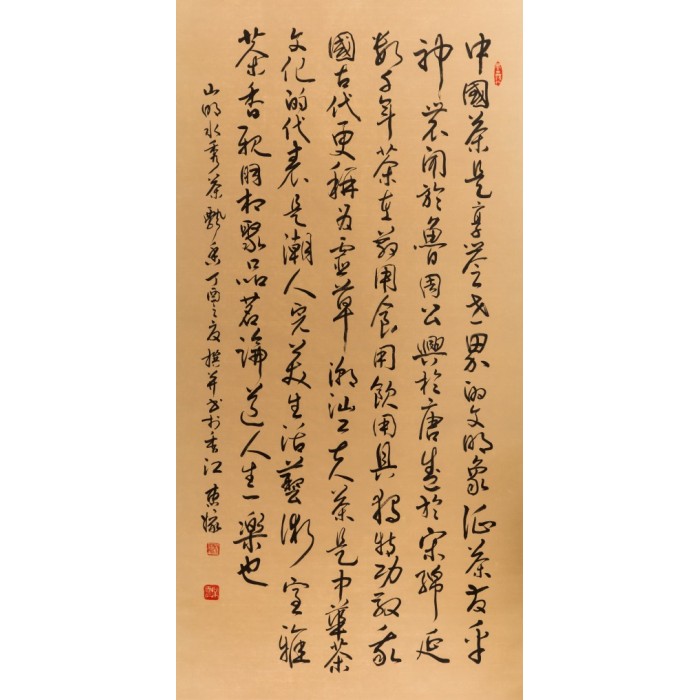 中國茶是享譽世界的文明象征茶發乎
神農聞於魯周公興於唐盛於宋綿延
數千年茶在药用食用飲用具獨特功效我
國古代更稱为靈草潮汕工夫茶是中華茶
文化的代表是潮人完美生活藝術室雅
茶香親朋相聚品茗論道人生一樂也
山明水秀茶飄香丁酉之夏撰并书於香江